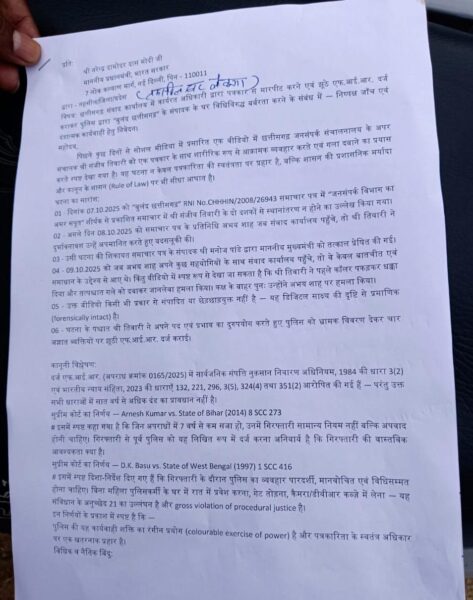 प्रति:
श्री नरेन्द्र दामोदर दास मोदी जी
माननीय प्रधानमंत्री, भारत सरकार
7 लोक कल्याण मार्ग, नई दिल्ली, पिन - 110011
द्वारा -
विषय: छत्तीसगढ़ संवाद कार्यालय में कार्यरत अधिकारी द्वारा पत्रकार से मारपीट करने एवं झूठे एफ.आई.आर. दर्ज
कराकर पुलिस द्वारा "बुलंद छत्तीसगढ़" के संपादक के घर विधिविरुद्ध बर्बरता करने के संबंध में — निष्पक्ष जाँच एवं
दंडात्मक कार्यवाही हेतु निवेदन।
महोदय,
पिछले कुछ दिनों से सोशल मीडिया में प्रसारित एक वीडियो में छत्तीसगढ़ जनसंपर्क संचालनालय के अपर
संचालक श्री संजीव तिवारी को एक पत्रकार के साथ शारीरिक रूप से आक्रामक व्यवहार करते एवं गला दबाने का प्रयास
करते स्पष्ट देखा गया है। यह घटना न केवल पत्रकारिता की स्वतंत्रता पर प्रहार है, बल्कि शासन की प्रशासनिक मर्यादा
और कानून के शासन (Rule of Law) पर भी सीधा आघात है।
घटना का सारांश:
01 - दिनांक 07.10.2025 को "बुलंद छत्तीसगढ़" RNI No.CHHHIN/2008/26943 समाचार पत्र में "जनसंपर्क विभाग का
अमर सपूत" शीर्षक से प्रकाशित समाचार में श्री संजीव तिवारी के दो दशकों से स्थानांतरण न होने का उल्लेख किया गया।
02 - अगले दिन 08.10.2025 को समाचार पत्र के प्रतिनिधि अभय शाह जब संवाद कार्यालय पहुँचे, तो श्री तिवारी ने
दुर्भावनावश उन्हें अपमानित करते हुए बदसलूकी की।
03 - उसी घटना की शिकायत समाचार पत्र के संपादक श्री मनोज पांडे द्वारा माननीय मुख्यमंत्री को तत्काल प्रेषित की गई।
04 - 09.10.2025 को जब अभय शाह अपने कुछ सहयोगियों के साथ संवाद कार्यालय पहुँचे, तो वे केवल बातचीत एवं
समाधान के उद्देश्य से आए थे। किंतु वीडियो में स्पष्ट रूप से देखा जा सकता है कि श्री तिवारी ने पहले कॉलर पकड़कर धक्का
दिया और तत्पश्चात गले को दबाकर जानलेवा हमला किया। कक्ष के बाहर पुनः उन्होंने अभय शाह पर हमला किया।
05 - उक्त वीडियो किसी भी प्रकार से संपादित या छेड़छाड़युक्त नहीं है — यह डिजिटल साक्ष्य की दृष्टि से प्रमाणिक
(forensically intact) है।
06 - घटना के पश्चात श्री तिवारी ने अपने पद एवं प्रभाव का दुरुपयोग करते हुए पुलिस को भ्रामक विवरण देकर चार
अज्ञात व्यक्तियों पर झूठी एफ.आई.आर. दर्ज कराई।
कानूनी विश्लेषण:
दर्ज एफ.आई.आर. (अपराध क्रमांक 0165/2025) में सार्वजनिक संपत्ति नुकसान निवारण अधिनियम, 1984 की धारा 3(2)
एवं भारतीय न्याय संहिता, 2023 की धाराएँ 132, 221, 296, 3(5), 324(4) तथा 351(2) आरोपित की गई हैं — परंतु उक्त
सभी धाराओं में सात वर्ष से अधिक दंड का प्रावधान नहीं है।
सुप्रीम कोर्ट का निर्णय — Arnesh Kumar vs. State of Bihar (2014) 8 SCC 273
# इसमें स्पष्ट कहा गया है कि जिन अपराधों में 7 वर्ष से कम सजा हो, उनमें गिरफ्तारी सामान्य नियम नहीं बल्कि अपवाद
होनी चाहिए। गिरफ्तारी से पूर्व पुलिस को यह लिखित रूप में दर्ज करना अनिवार्य है कि गिरफ्तारी की वास्तविक
आवश्यकता क्या है।
सुप्रीम कोर्ट का निर्णय — D.K. Basu vs. State of West Bengal (1997) 1 SCC 416
# इसमें स्पष्ट दिशा-निर्देश दिए गए हैं कि गिरफ्तारी के दौरान पुलिस का व्यवहार पारदर्शी, मानवोचित एवं विधिसम्मत
होना चाहिए। बिना महिला पुलिसकर्मी के घर में रात में प्रवेश करना, गेट तोड़ना, कैमरा/डीवीआर कब्जे में लेना — यह
संविधान के अनुच्छेद 21 का उल्लंघन है और gross violation of procedural justice है।
इन निर्णयों के प्रकाश में स्पष्ट है कि —
पुलिस की यह कार्यवाही शक्ति का रंगीन प्रयोग (colourable exercise of power) है और पत्रकारिता के स्वतंत्र अधिकार
पर एक खतरनाक प्रहार है।
विधिक व नैतिक बिंदु: